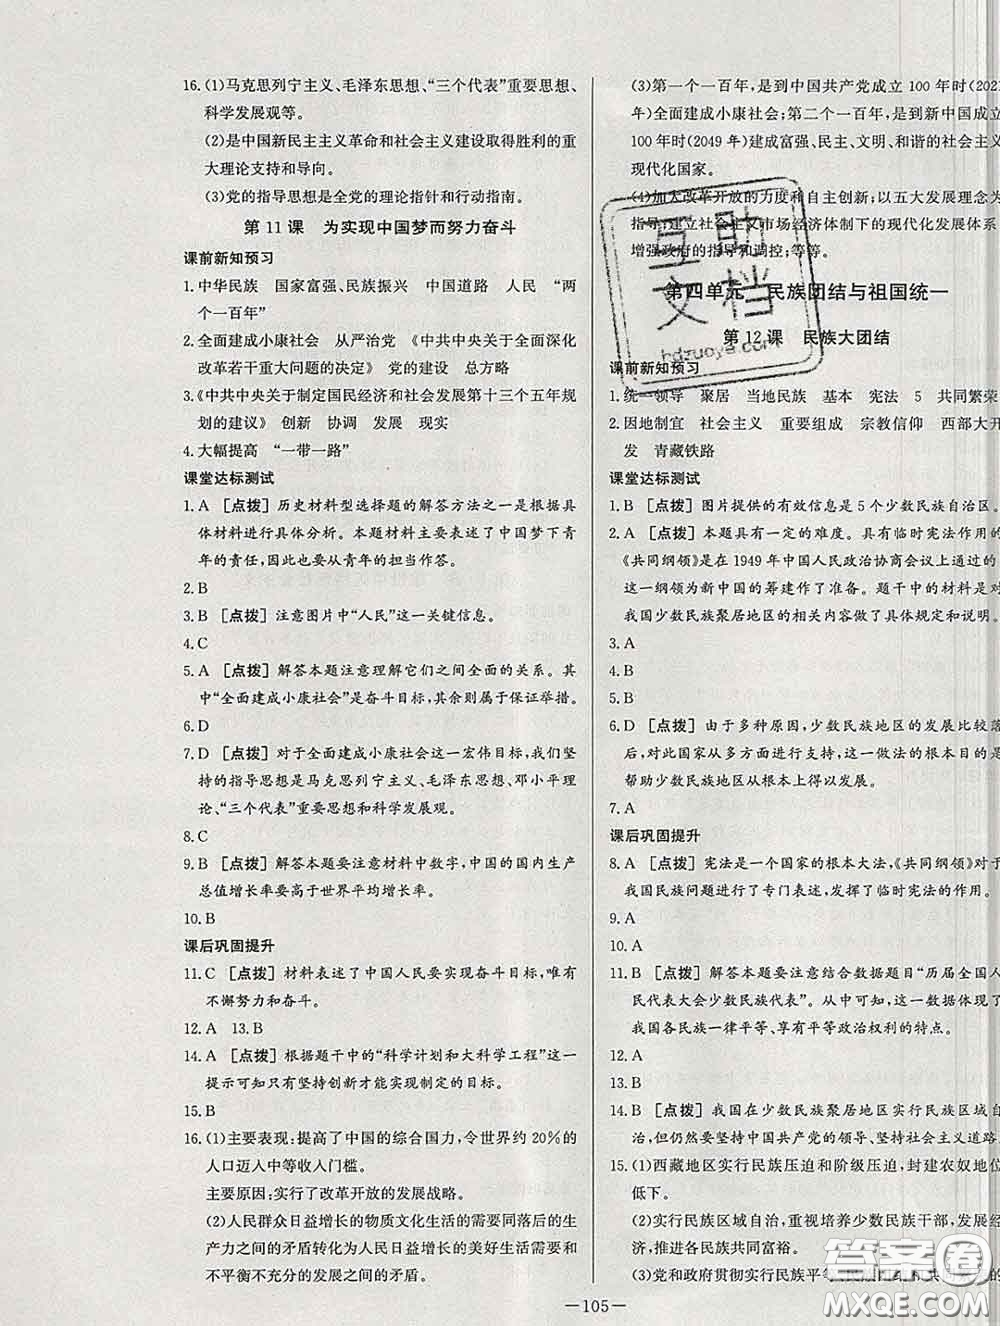 16.(1)马克思列宁主义、毛泽东思想、“三个代表”重要思想、
科学发展观等。
(2)是中国新民主主义革命和社会主义建设取得胜利的重
大理论支持和导向。
(3)党的指导思想是全党的理论指针和行动指南。
第11课 为实现中国梦而努力奋斗
课前新知预习
1.中华民族 国家富强、民族振兴 中国道路 人民 “两
个一百年”
2.全面建成小康社会 从严治党 《中共中央关于全面深化
改革若干重大问题的决定》 党的建设 总方略
3.《中共中央关于制定国民经济和社会发展第十三个五年规
划的建议》 创新 协调 发展 现实
4.大幅提高 “一带一路”
课堂达标测试
1.A [点拨] 历史材料型选择题的解答方法之一是根据具
体材料进行具体分析。本题材料主要表述了中国梦下青
年的责任,因此也要从青年的担当作答。
2.B
3.B [点拨] 注意图片中“人民”这一关键信息。
4.C
5.A [点拨] 解答本题注意理解它们之间全面的关系。其
中“全面建成小康社会”是奋斗目标,其余则属于保证举措。
6.D
7.D [点拨] 对于全面建成小康社会这一宏伟目标,我们坚
持的指导思想是马克思列宁主义、毛泽东思想、邓小平理
论、“三个代表”重要思想和科学发展观。
8.C
9.B [点拨] 解答本题要注意材料中数字,中国的国内生产
总值增长率要高于世界平均增长率。
10.B
课后巩固提升
11.C [点拨] 材料表述了中国人民要实现奋斗目标,唯有
不懈努力和奋斗。
12.A 13.B
14.A [点拨] 根据题干中的“科学计划和大科学工程”这一
提示可知只有坚持创新才能实现制定的目标。
15.B
16.(1)主要表现:提高了中国的综合国力,令世界约20%的
人口迈入中等收入门槛。
主要原因:实行了改革开放的发展战略。
(2)人民群众日益增长的物质文化生活的需要同落后的生
产力之间的矛盾转化为人民日益增长的美好生活需要和
不平衡不充分的发展之间的矛盾。
(3)第一个一百年,是到中国共产党成立100年时(2021
年)全面建成小康社会;第二个一百年,是到新中国成立
100年时(2049年)建成富强、民主、文明、和谐的社会主义
现代化国家。
(4)加大改革开放的力度和自主创新;以五大发展理念为
指导;建立社会主义市场经济体制下的现代化发展体系
增强政府的指导和调控;等等。
第四单元 民族团结与祖国统一
第12课 民族大团结
课前新知预习
1.统一领导 聚居 当地民族 基本 宪法 5 共同繁荣
2.因地制宜 社会主义 重要组成 宗教信仰 西部大开
发 青藏铁路
课堂达标测试
1.B [点拨] 图片提供的有效信息是5个少数民族自治区。
2.A [点拨] 本题具有一定的难度。具有临时宪法作用的
《共同纲领》是在1949年中国人民政治协商会议上通过的
这一纲领为新中国的筹建作了准备。题干中的材料是对
我国少数民族聚居地区的相关内容做了具体规定和说明。
3.A
4.B
5.B
6.D [点拨] 由于多种原因,少数民族地区的发展比较落
后,对此国家从多方面进行支持,这一做法的根本目的是
帮助少数民族地区从根本上得以发展。
7.A
课后巩固提升
8.A [点拨] 宪法是一个国家的根本大法,《共同纲领》对于
我国民族问题进行了专门表述,发挥了临时宪法的作用。
9.A
10.A
11.B [点拨] 解答本题要注意结合数据题目“历届全国人
民代表大会少数民族代表”。从中可知,这一数据体现了
我国各民族一律平等、享有平等政治权利的特点。
12.A
13.B
14.B [点拨] 我国在少数民族聚居地区实行民族区域自
治,但仍然要坚持中国共产党的领导、坚持社会主义道路
15.(1)西藏地区实行民族压迫和阶级压迫,封建农奴地位
低下。
(2)实行民族区域自治,重视培养少数民族干部,发展经
济,促进各民族共同富裕。
(3)党和政府贯彻实行民族平等、民族团结和共
—105—
互助
文档
hdzuoye.com
答案圈
MXQE.COM